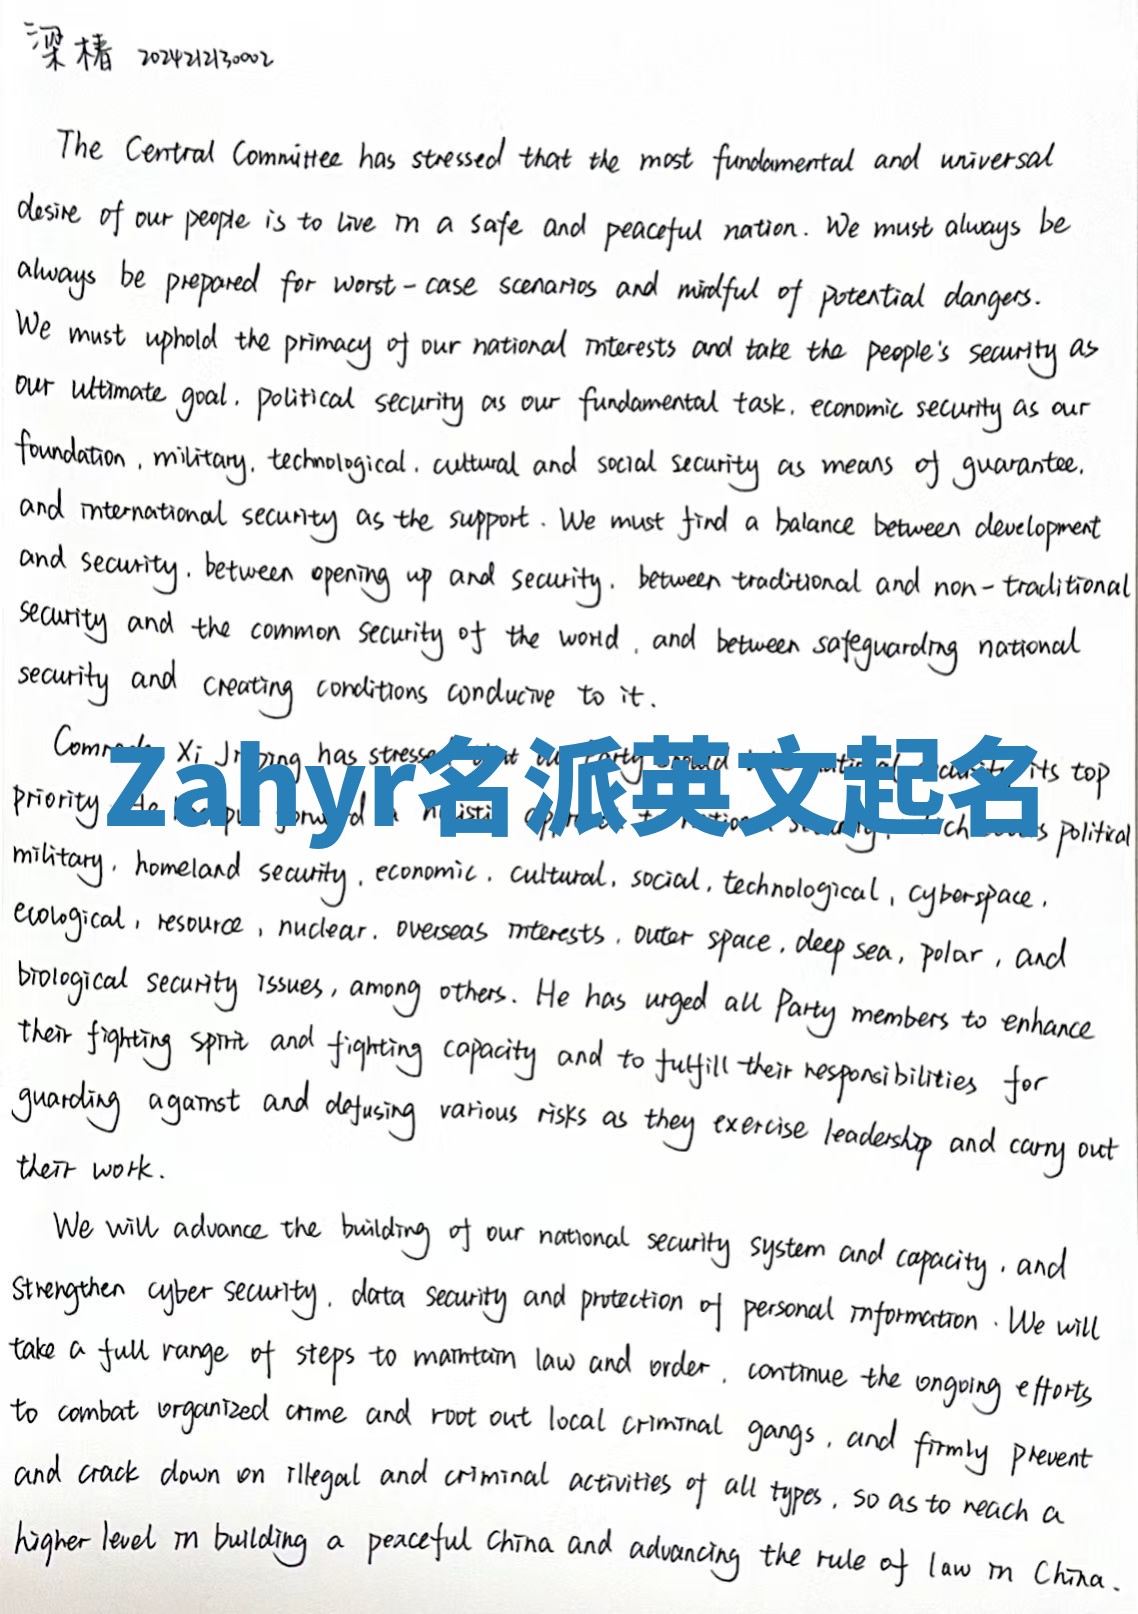 梁椿 2024212130002
The Central Committee has stressed that the most fundamental and universal
desire of our people is to live in a safe and peaceful nation. We must always be
always be prepared for worst-case scenarios and mindful of potential dangers.
We must uphold the primacy of our national interests and take the people's security as
our ultimate goal, political security as our fundamental task, economic security as our
foundation, military, technological, cultural and social security as means of guarantee,
and international security as the support. We must find a balance between development
and security, between opening up and security, between traditional and non-traditional
security and the common security of the world, and between safeguarding national
security and creating conditions conducive to it.
Xi Jinping has stressed its top
Zahyr名派英文起名
priority political
military, homeland security, economic, cultural, social, technological, cyberspace,
ecological, resource, nuclear, overseas interests, outer space, deep sea, polar, and
biological security issues, among others. He has urged all Party members to enhance
their fighting spirit and fighting capacity and to fulfill their responsibilities for
guarding against and defusing various risks as they exercise leadership and carry out
their work.
We will advance the building of our national security system and capacity, and
strengthen cyber security, data security and protection of personal information. We will
take a full range of steps to maintain law and order, continue the ongoing efforts
to combat organized crime and root out local criminal gangs, and firmly prevent
and crack down on illegal and criminal activities of all types, so as to reach a
higher level in building a peaceful China and advancing the rule of law in China.